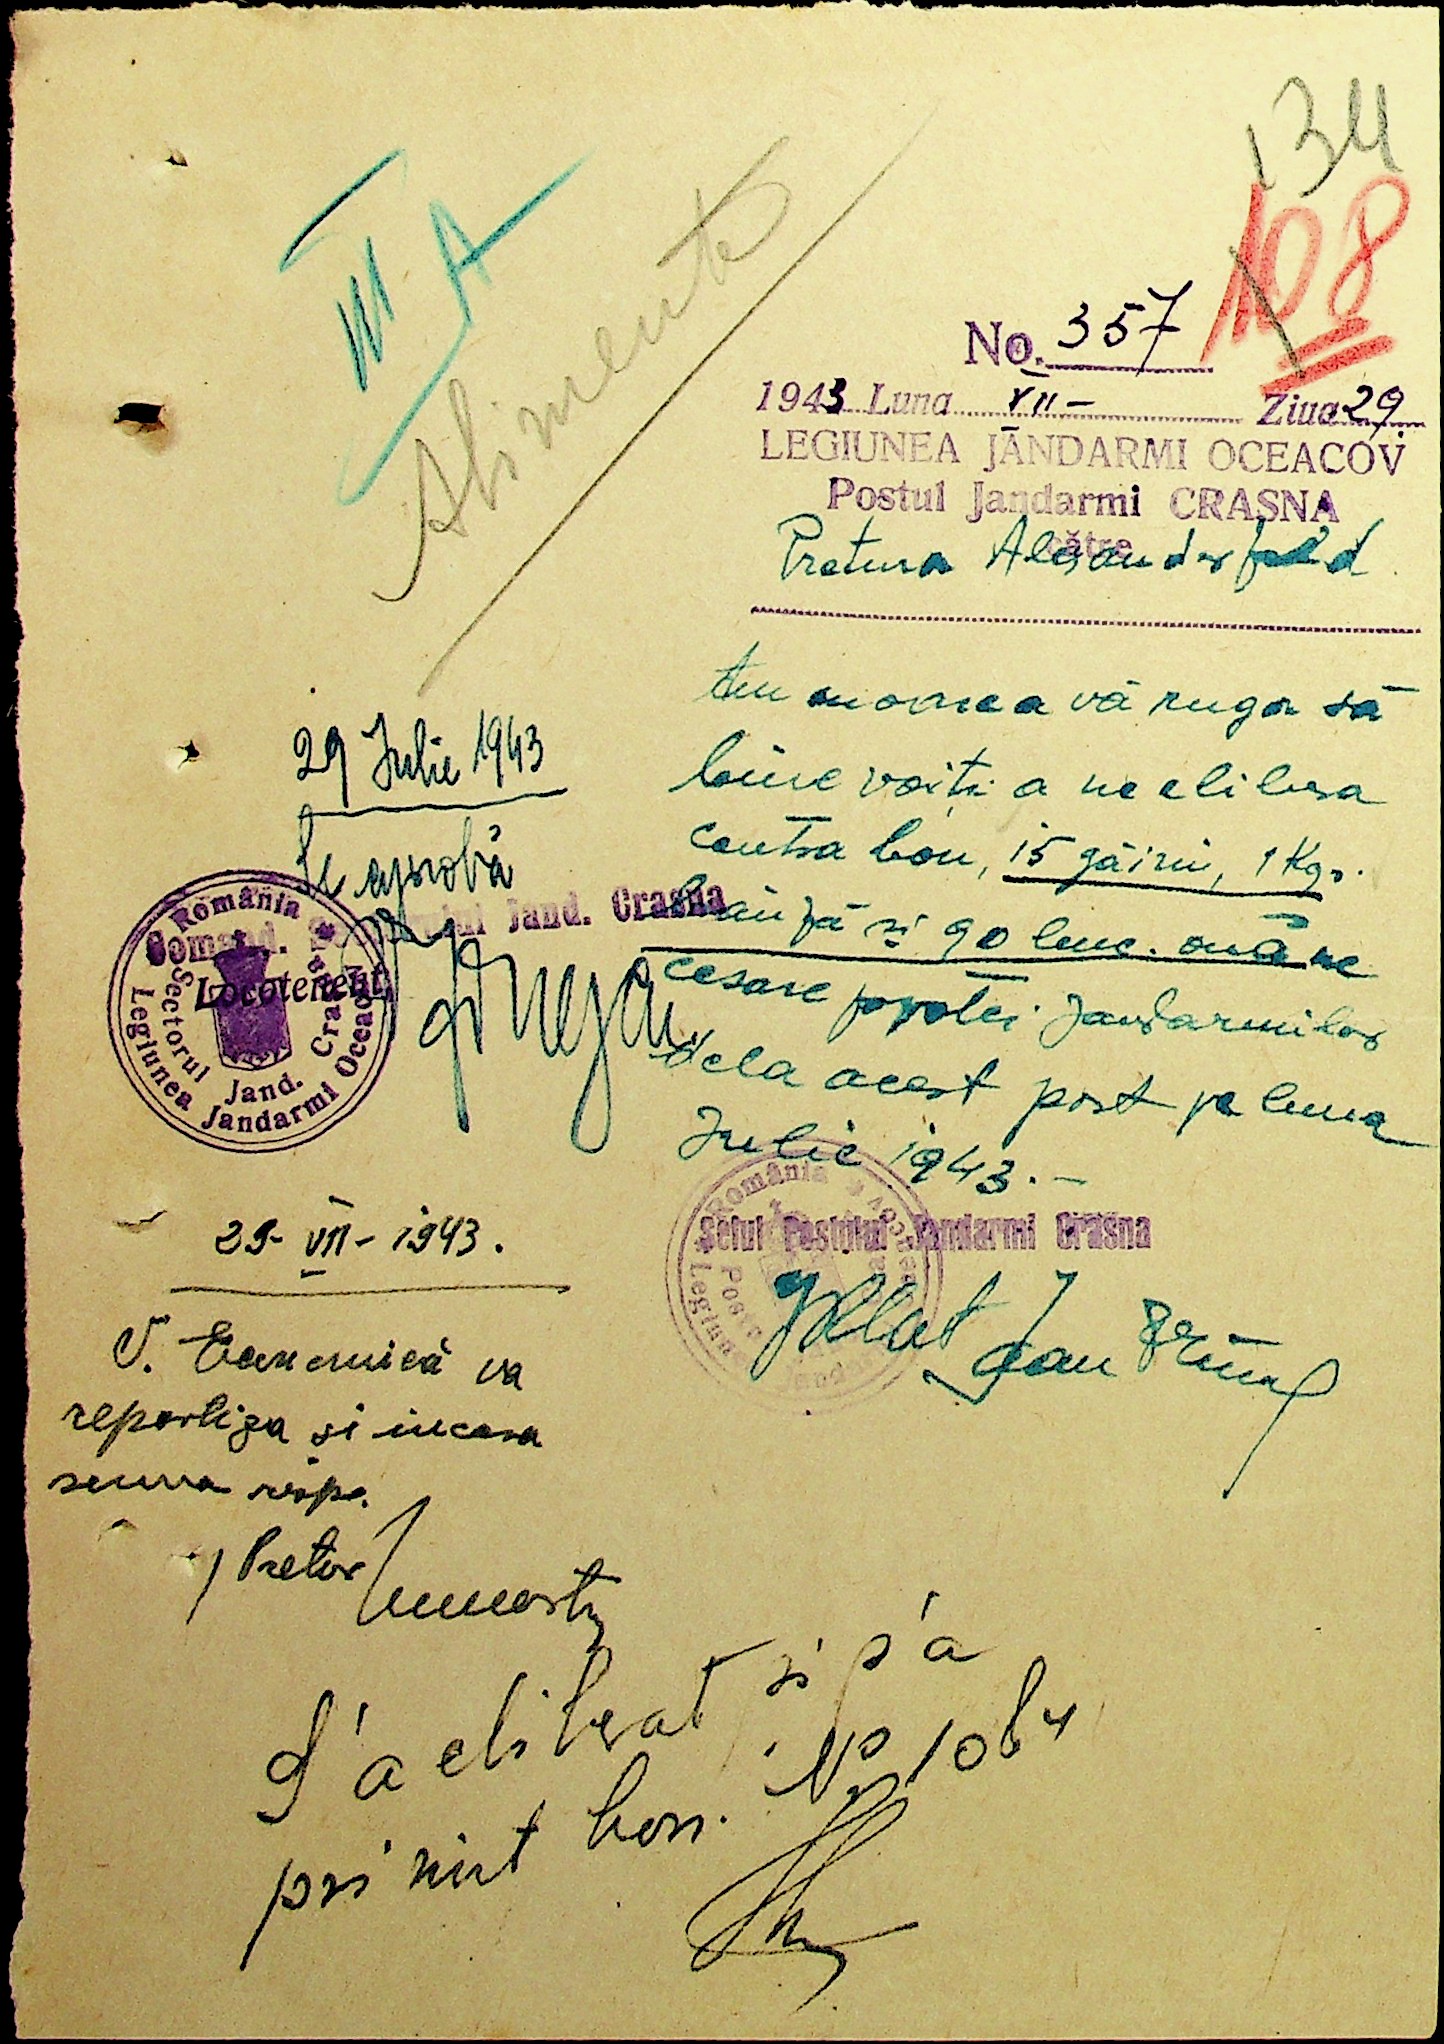 134
108
III A
Alimente
No. 357
1943 Luna VII - Ziua 29
LEGIUNEA JANDARMI OCEACOV
Postul Jandarmi CRASNA
către
Pretura Alexanderfeld
Am onoarea vă ruga să
bine voiți a ne elibera
contra bon, 15 găini, 1 Kgr.
brânză și 90 buc. ouă ne
cesare popotei Jandarmilor
dela acest post pe luna
Iulie 1943. -
Șeful Postului Jandarmi Crasna
29 Iulie 1943
Se aprobă
Comand. Sectorului Jand. Crasna
Locotenent
România
Sectorul Jand. Crasna
Legiunea Jandarmi Oceacov
România
29 - VII - 1943.
S. Economică va
repartiza și incasa
suma resp.
/ Pretor
S'a eliberat și s'a
primit bon. No 1064